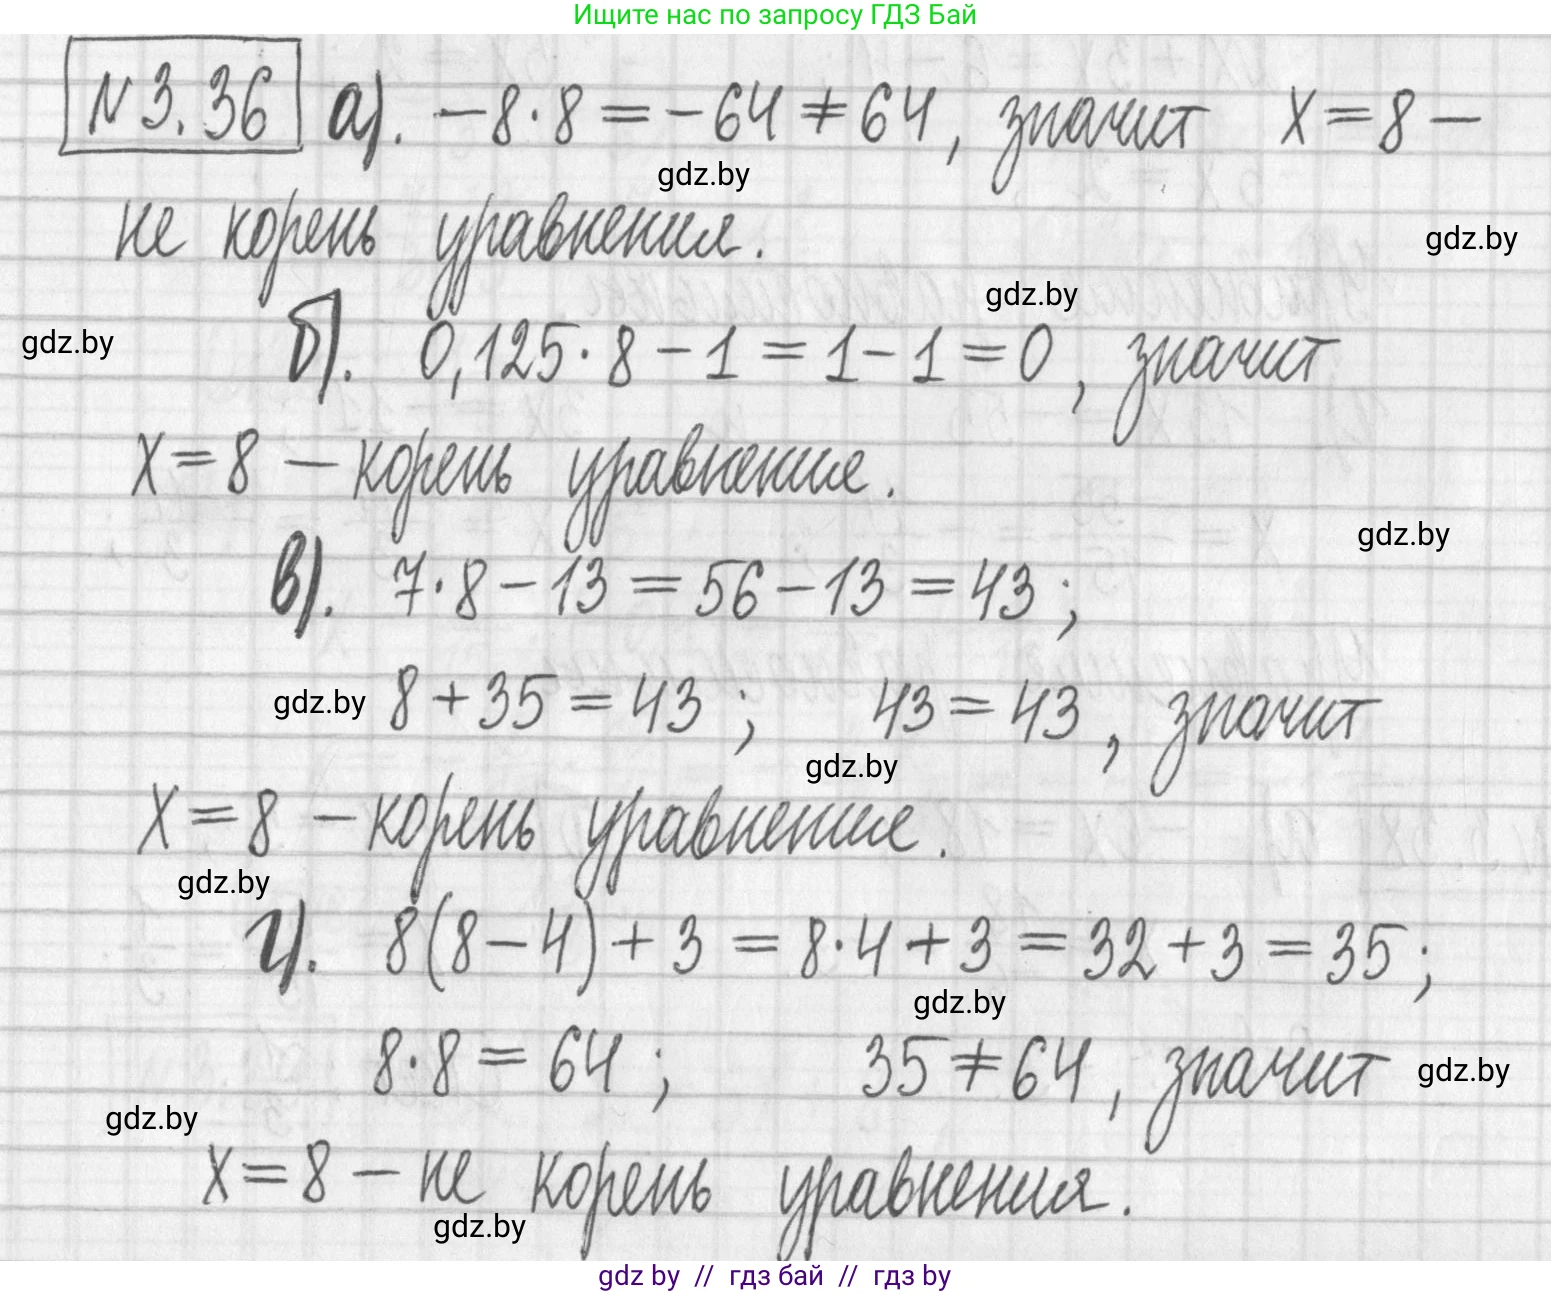 Ищите нас по запросу ГДЗ Бай
№3.36 а). −8·8=−64≠64, значит x=8 −
gdz.by
не корень уравнения.
gdz.by
gdz.by
б). 0,125·8−1=1−1=0, значит
gdz.by
x=8 − корень уравнения.
gdz.by
в). 7·8−13=56−13=43;
gdz.by
8+35=43; 43=43, значит
gdz.by
x=8 − корень уравнения.
gdz.by
г). 8(8−4)+3=8·4+3=32+3=35;
gdz.by
8·8=64; 35≠64, значит
gdz.by
gdz.by
x=8 − не корень уравнения.
gdz.by
gdz by // гдз бай // гдз by